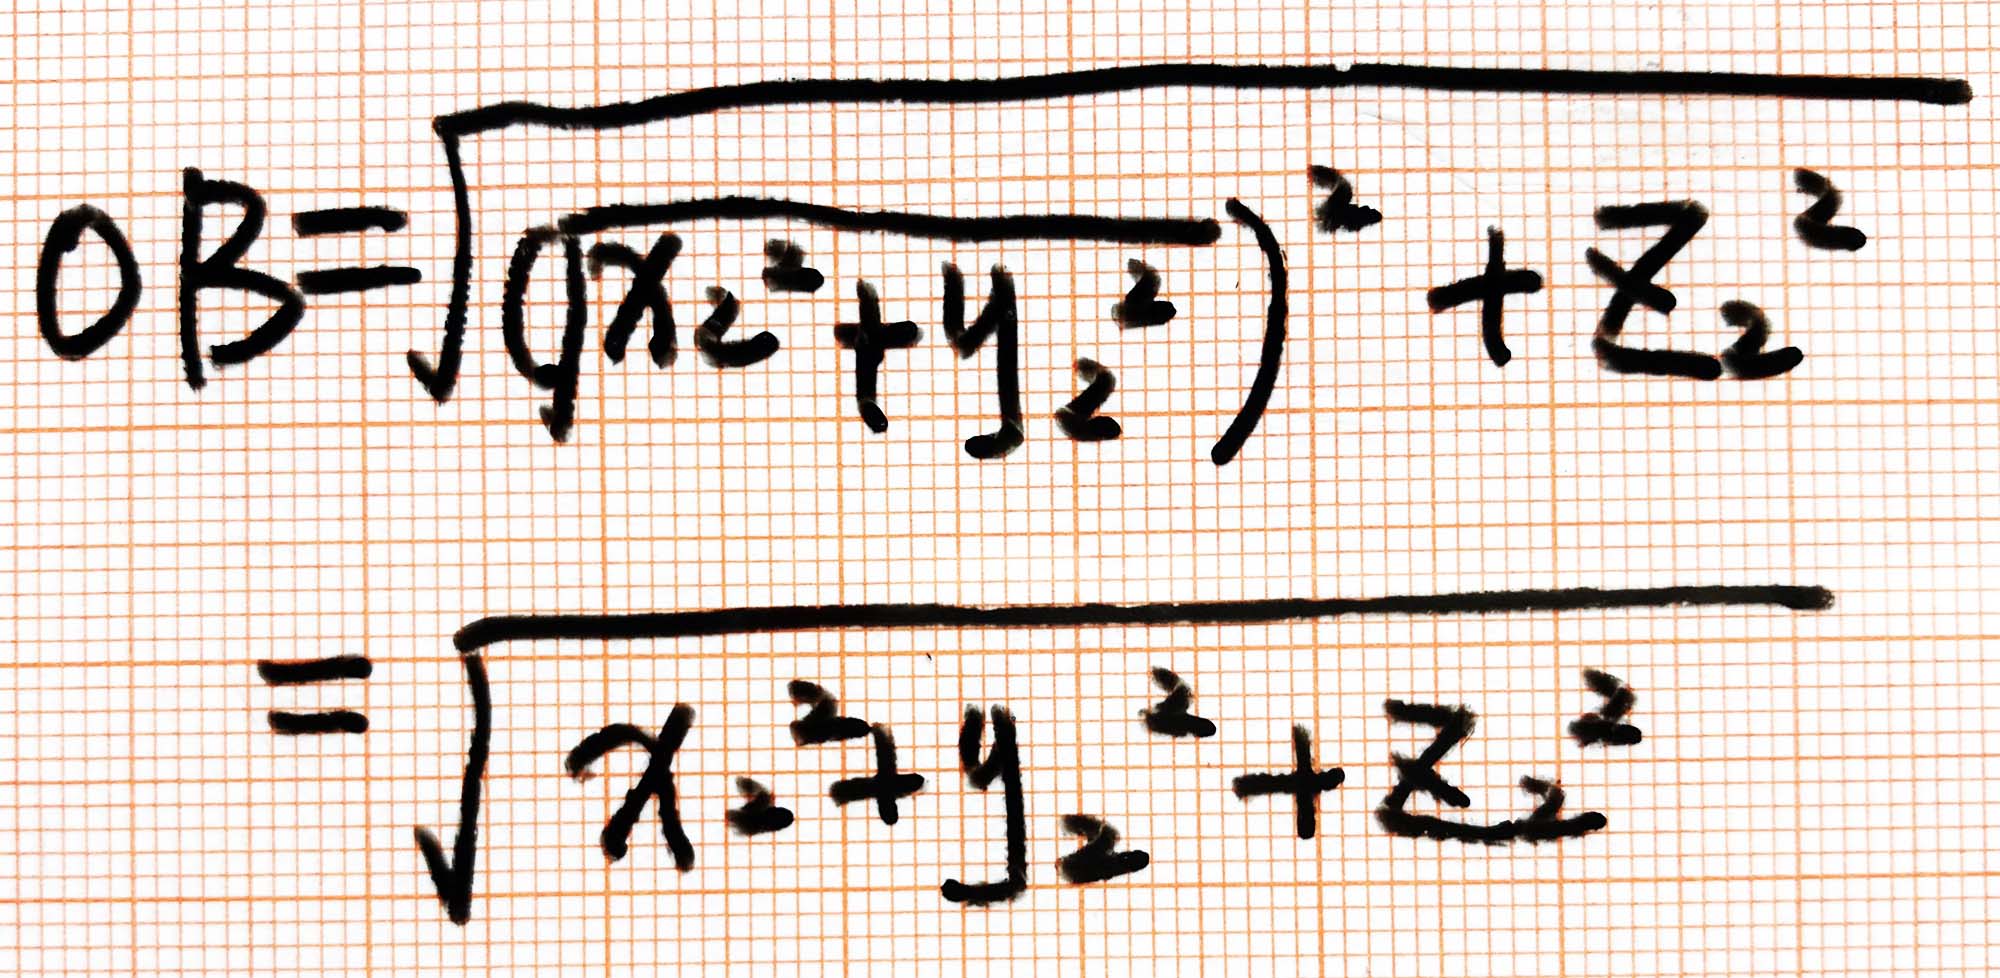 OB=√((√(x₂²+y₂²))²+z₂²)
=√(x₂²+y₂²+z₂²)